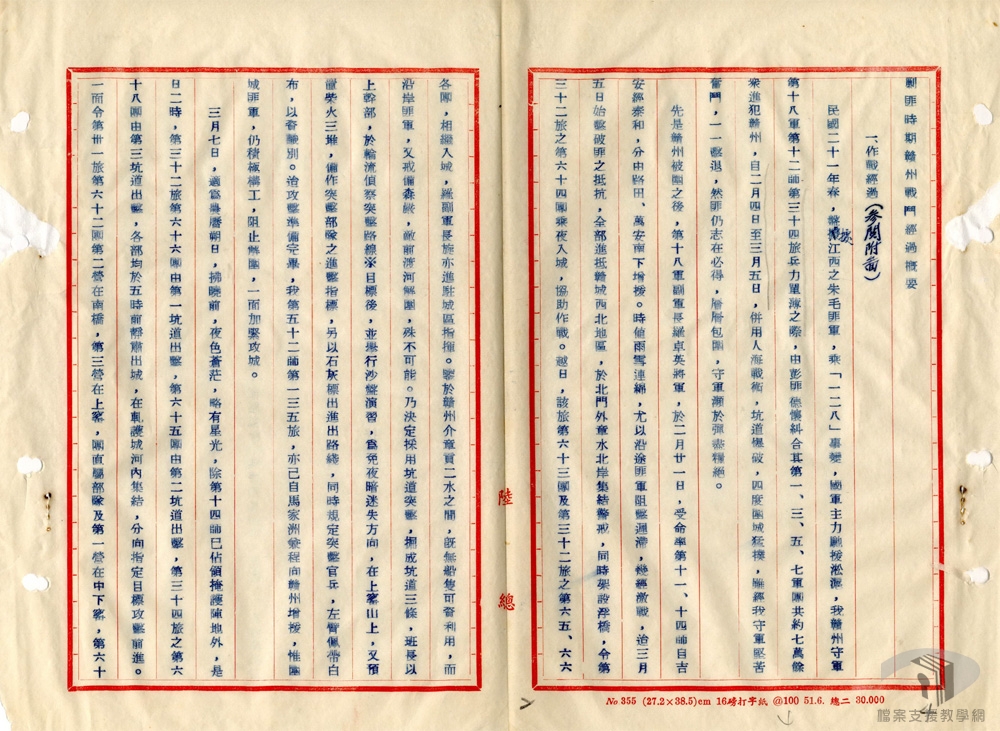 剿匪時期贛州戰鬥經過概要
一作戰經過(參閱附圖)
民國二十一年春,竄擾江西之朱毛匪軍,乘「一二八」事變,國軍主力馳援淞滬,我贛州守軍
第十八軍第十二師第三十四旅兵力單薄之際,由彭匪德懷糾合其第一、三、五、七軍團共約七萬餘
衆進犯贛州,自二月四日至三月五日,併用人海戰術,坑道爆破,四度圍城猛撲,雖經我守軍堅苦
奮鬥,一一擊退,然匪仍志在必得,層層包圍,守軍瀕於彈盡糧絕。
先是贛州被圍之後,第十八軍副軍長羅卓英將軍,於二月廿一日,受命率第十一、十四師自吉
安經泰和,分由路田、萬安南下增援。時値雨雪連綿,尤以沿途匪軍阻擊遲滯,幾經激戰,迨三月
五日始擊破匪之抵抗,全部進抵贛城西北地區,於北門外章水北岸集結警戒,同時架設浮橋,令第
三十二旅之第六十四團乘夜入城,協助作戰。越日,該旅第六十三團及第三十二旅之第六五、六六
各團,相繼入城,羅副軍長旋亦進駐城區指揮。鑒於贛州介章貢二水之間,旣無船隻可資利用,而
沿岸匪軍,又戒備森嚴,敵前渡河解圍,殊不可能。乃決定採用坑道突擊,掘成坑道三條,班長以
上幹部,於輪流偵察突擊路線與目標後,並舉行沙盤演習,爲免夜暗迷失方向,在上窰山上,又預
置柴火三堆,備作突擊部隊之進擊指標,另以石灰標出進出路綫,同時規定突擊官兵,左臂佩帶白
布,以資識別。迨攻擊準備完畢,我第五十二師第一三五旅,亦已自馬家洲兼程向贛州增援,惟圍
城匪軍,仍積極構工,阻止解圍,一面加緊攻城。
三月七日,適爲農曆朔日,拂曉前,夜色蒼茫,略有星光,除第十四師已佔領掩護陣地外,是
日二時,第三十二旅第六十六團由第一坑道出擊,第六十五團由第二坑道出擊,第三十四旅之第六
十八團由第三坑道出擊,各部均於五時前靜肅出城,在軋護城河內集結,分向指定目標攻擊前進。
一面令第卅一旅第六十二團第二營在南橋,第三營在上窰,團直屬部隊及第一營在中下窰,第六十
陸 總
No 355 (27.2×38.5)cm 16磅打字紙 @100 51.6. 總二 30.000
檔案支援教學網